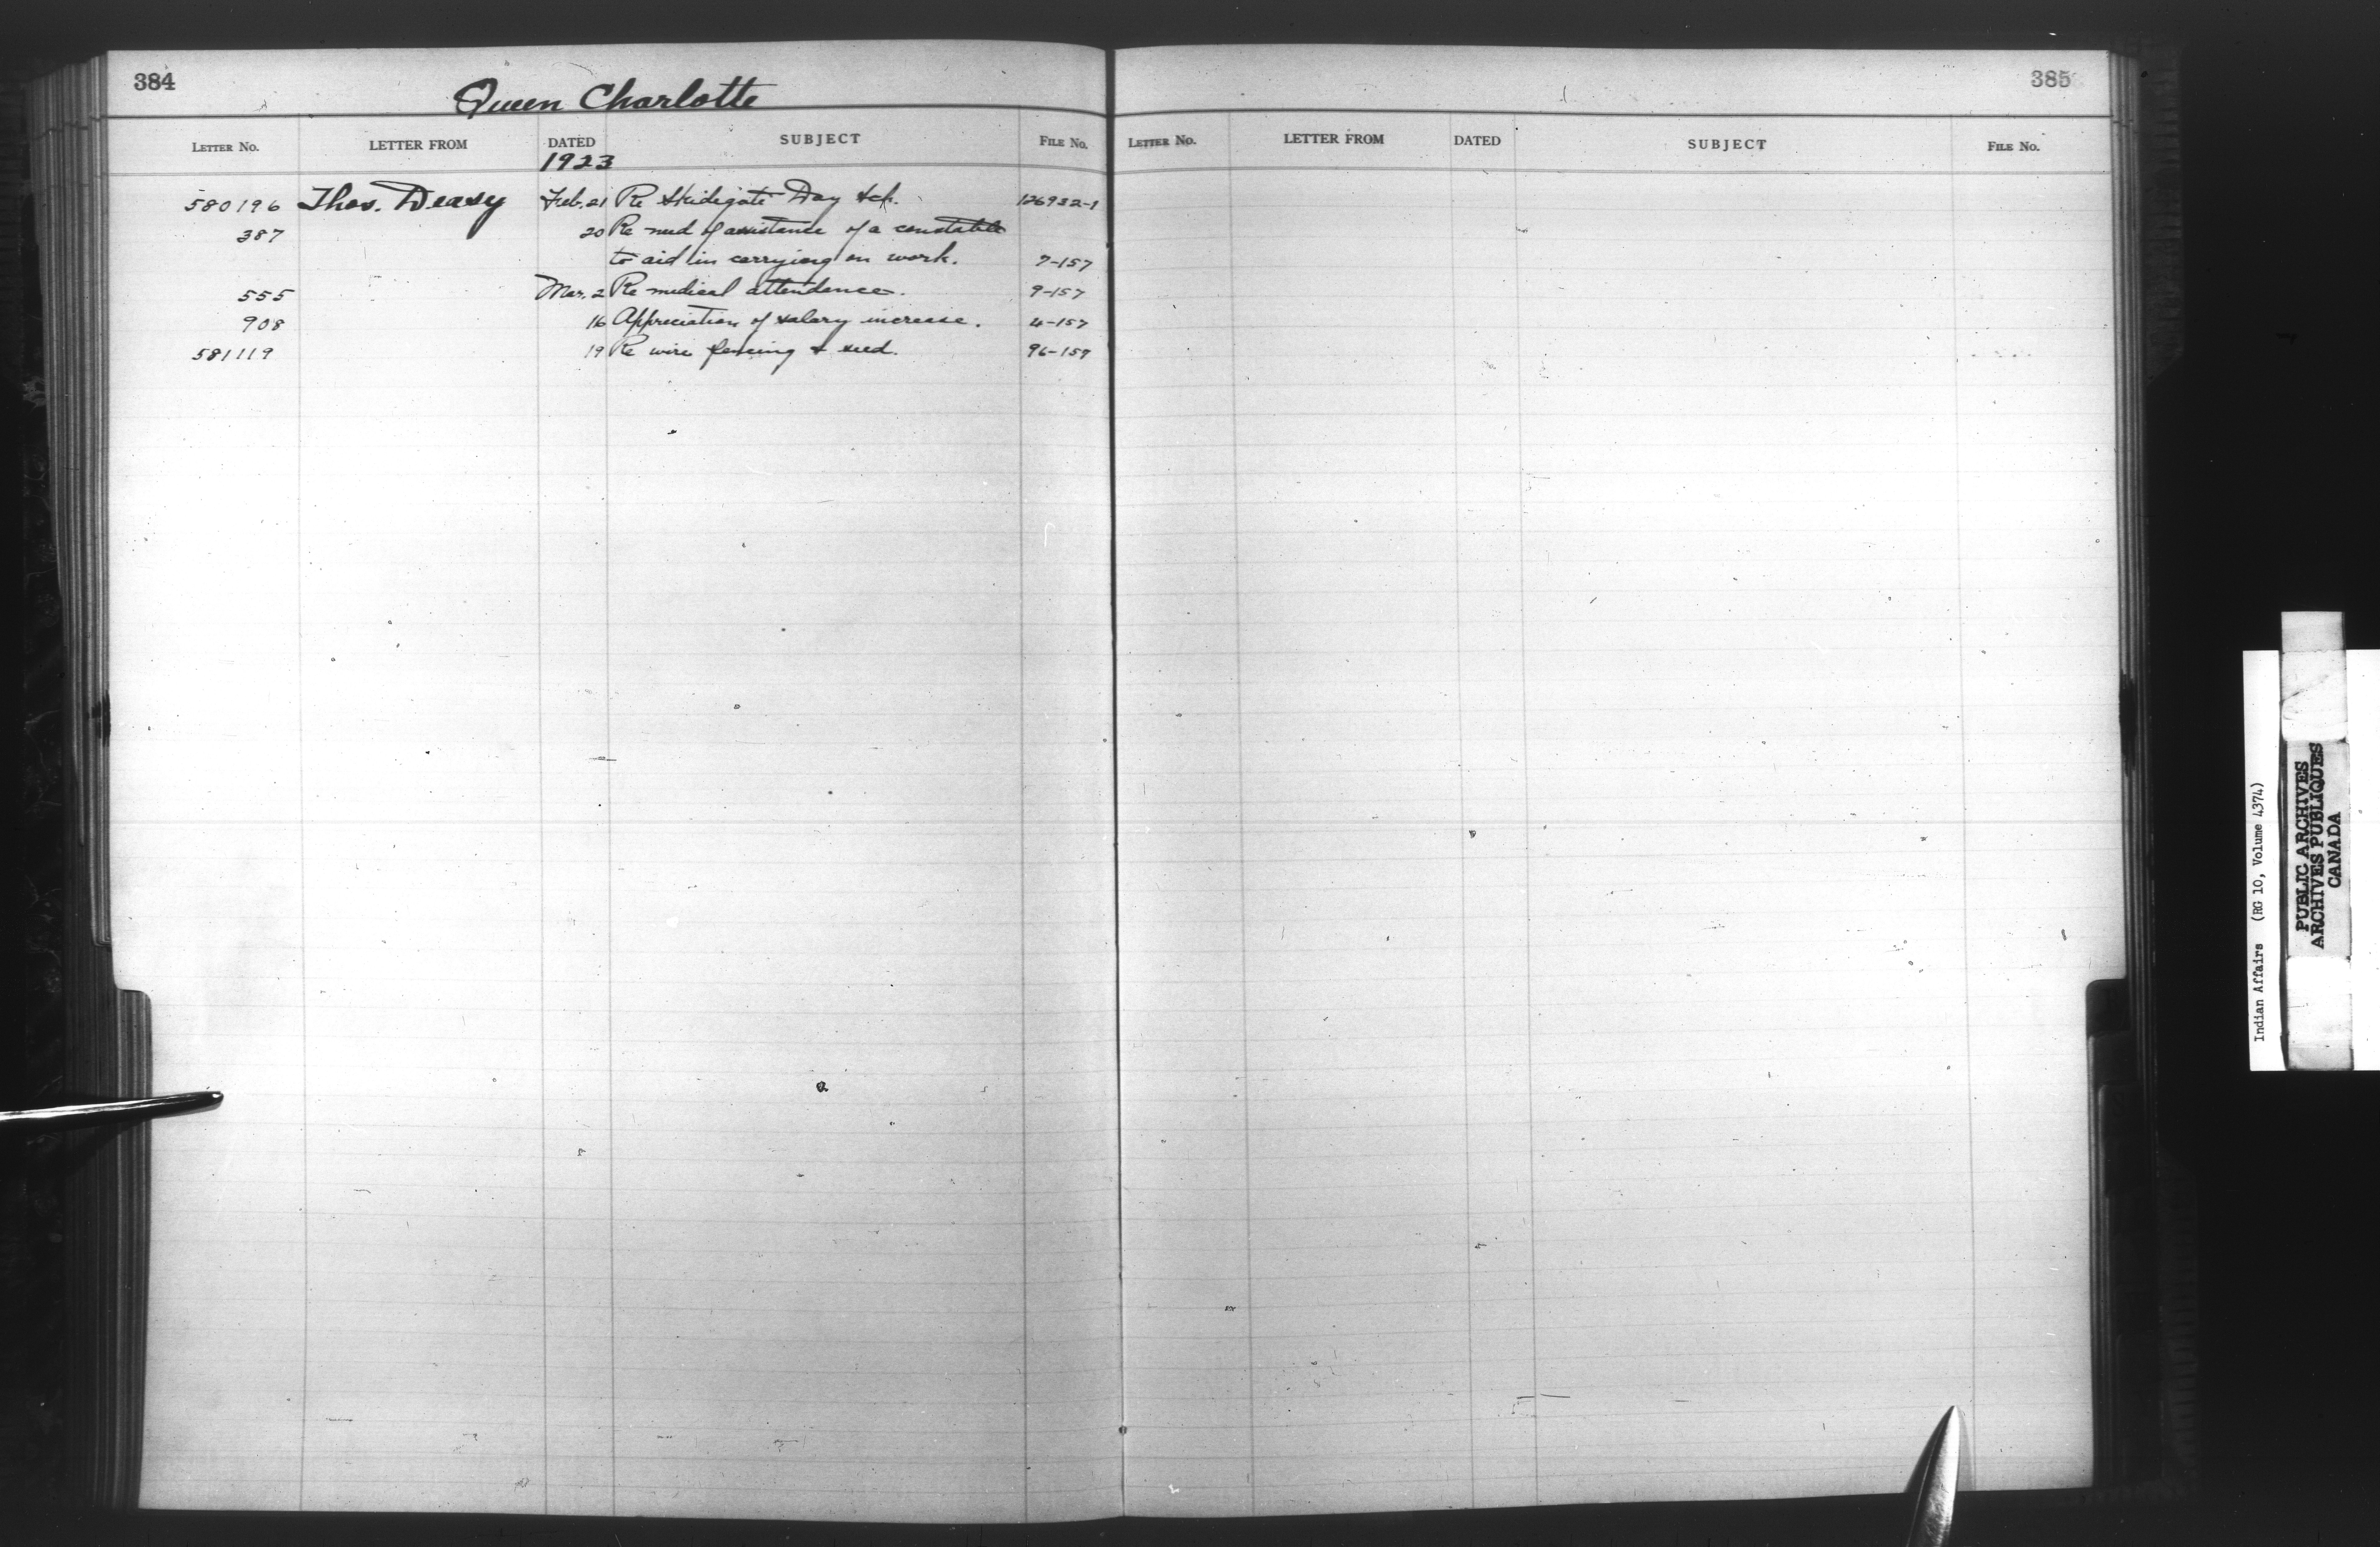 384
Queen Charlotte
LETTER No. LETTER FROM DATED SUBJECT FILE No.
1923
580196 Thos. Deasy Feb. 21 Re Skidegate Day Sch. 126932-1
387 20 Re need of assistance of a constable
to aid in carrying on work. 7-157
555 Mar. 2 Re medical attendance. 9-157
908 16 Appreciation of salary increase. 4-157
581119 19 Re wire fencing & seed. 96-157
385
LETTER No. LETTER FROM DATED SUBJECT FILE No.
Indian Affairs (RG 10, Volume 4374)
PUBLIC ARCHIVES
ARCHIVES PUBLIQUES
CANADA